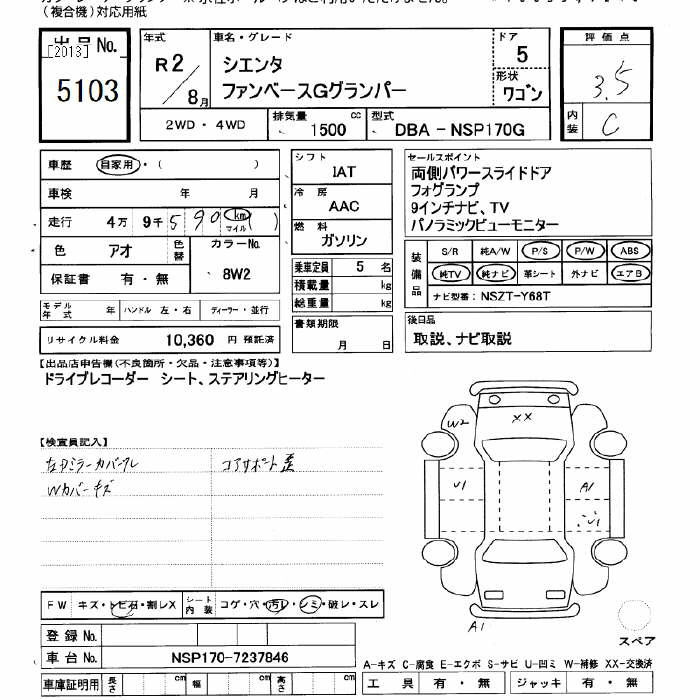 (複合機)対応用紙
出品No. [2013] 5103
年式 R2/8月
車名・グレード シエンタ ファンベースGグランパー
ドア 5
形状 ワゴン
2WD・4WD
排気量 1500 cc
型式 DBA - NSP170G
評価点 3.5
内装 C
車歴 自家用・( )
車検 年 月
走行 4万 9千 590 km マイル ( )
色 アオ 色替 カラーNo. 8W2
保証書 有・無
モデル年式 年 ハンドル 左・右 ディーラー・並行
リサイクル料金 10,360 円 預託済
シフト IAT
冷房 AAC
燃料 ガソリン
乗車定員 5 名
積載量 kg
総重量 kg
書類期限 月 日
セールスポイント
両側パワースライドドア
フォグランプ
9インチナビ、TV
パノラミックビューモニター
装備品 S/R 純A/W P/S P/W ABS
純TV 純ナビ 革シート 外ナビ エアB
ナビ型番: NSZT-Y68T
後日品
取説、ナビ取説
【出品店申告欄(不良箇所・欠品・注意事項等)】
ドライブレコーダー シート、ステアリングヒーター
【検査員記入】
コアサポート歪
Wカバーキズ
W2 XX
U1 A1
U1
A1
スペア
FW キズ・トビ石・割レX シート内装 コゲ・穴・汚レ・シミ・破レ・スレ
登録No.
車台No. NSP170-7237846
車庫証明用 長さ cm 幅 cm 高さ cm
A-キズ C-腐食 E-エクボ S-サビ U-凹ミ W-補修 XX-交換済
工具 有・無 ジャッキ 有・無